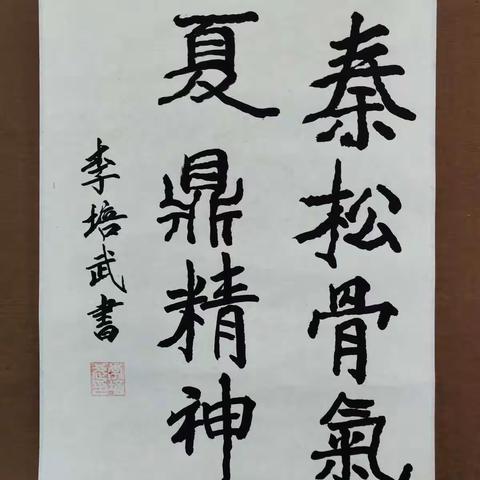 秦松骨氣
夏鼎精神
李培武書